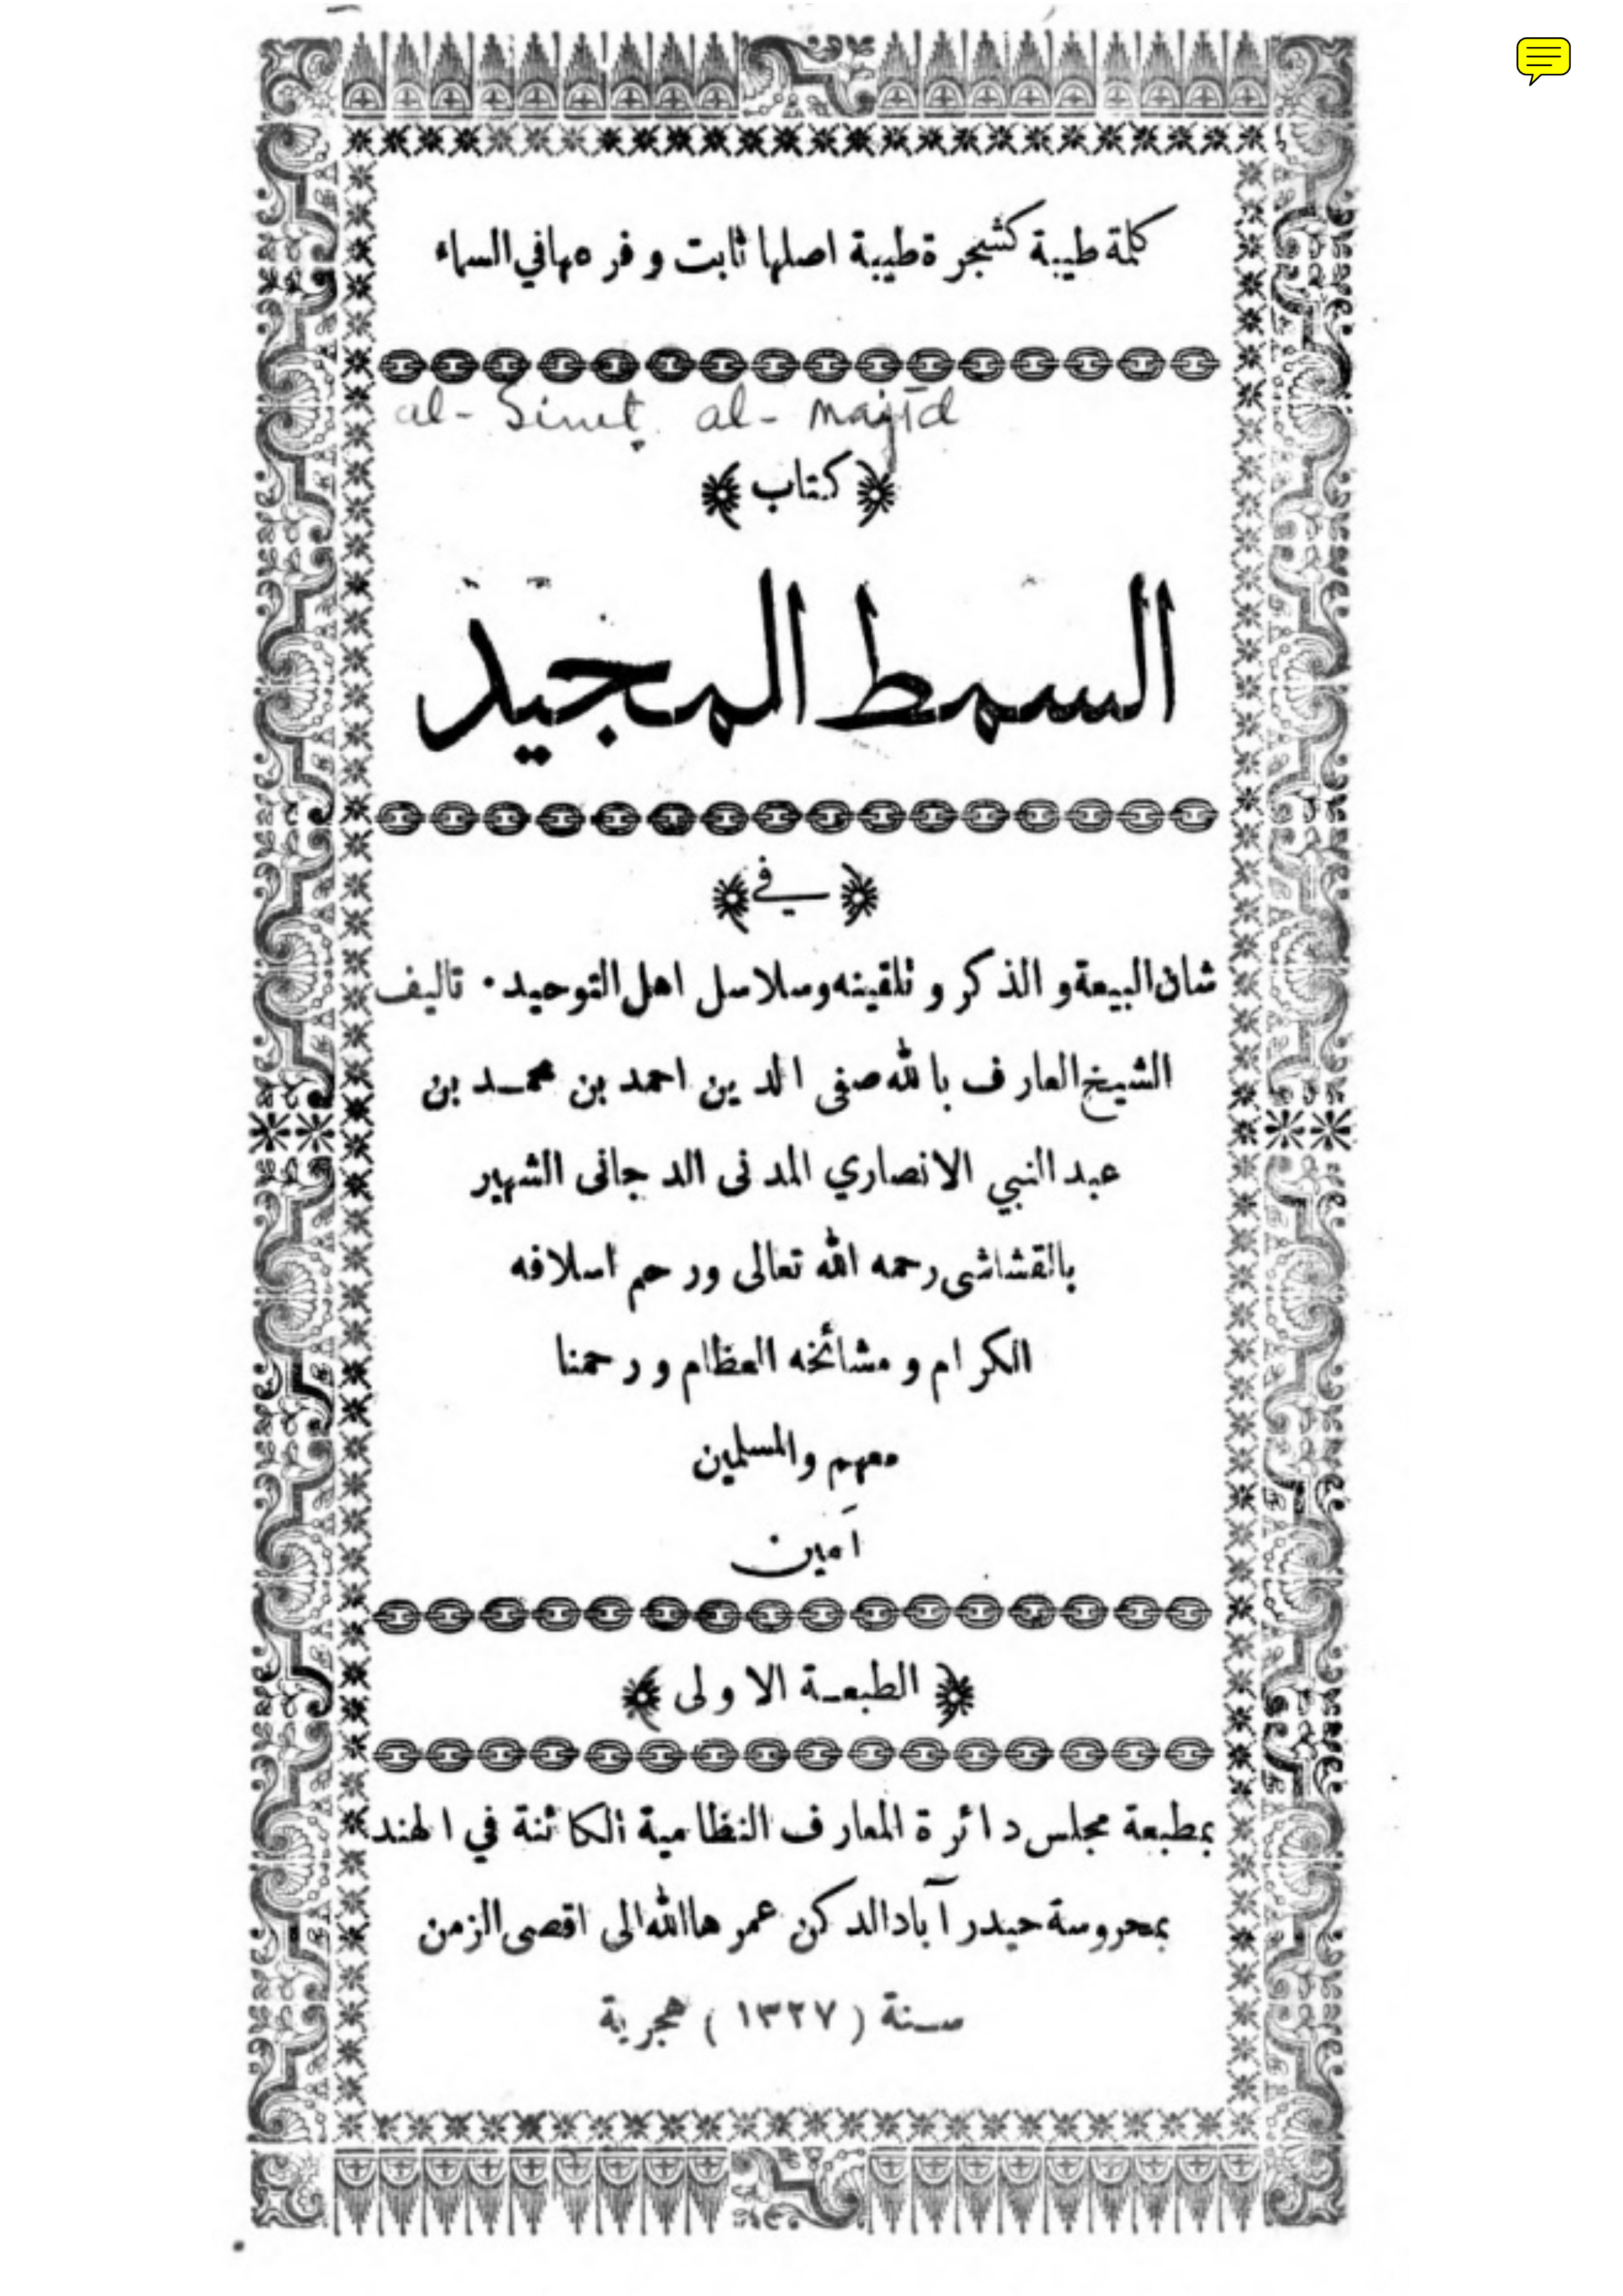 كلمة طيبة كشجرة طيبة اصلها ثابت و فرعها في السماء
al-Simṭ al-majīd
﴿ كتاب ﴾
السمط المجيد
﴿ في ﴾
شان البيعة و الذكر و تلقينه وسلاسل اهل التوحيد ۰ تاليف
الشيخ العارف بالله صفى الدين احمد بن محمد بن
عبد النبي الانصاري المدنى الدجانى الشهير
بالقشاشى رحمه الله تعالى ورحم اسلافه
الكرام و مشائخه العظام و رحمنا
معهم والمسلمين
آمين
﴿ الطبعة الاولى ﴾
بمطبعة مجلس دائرة المعارف النظامية الكائنة في الهند
بمحروسة حيدر آباد الدكن عمرها الله الى اقصى الزمن
سنة ( ١٣٢٧ ) هجرية